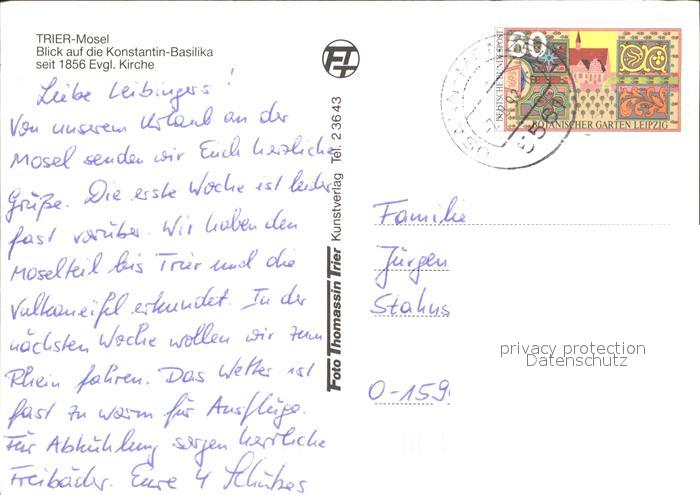 TRIER-Mosel
Blick auf die Konstantin-Basilika
seit 1856 Evgl. Kirche
Liebe Leibingers!
Von unserem Urlaub an der
Mosel senden wir Euch herzliche
Grüße. Die erste Woche ist leider
fast vorüber. Wir haben den
Moselteil bis Trier und die
Vulkaneifel erkundet. In der
nächsten Woche wollen wir zum
Rhein fahren. Das Wetter ist
fast zu warm für Ausflüge.
Für Abkühlung sorgen herrliche
Freibäder. Eure 4 Schützes
FT
Foto Thomassin Trier Kunstverlag Tel. 2 36 43
DEUTSCHE BUNDESPOST
60
1693
BOTANISCHER GARTEN LEIPZIG
Familie
Jürgen
Stahns
O-159
privacy protection
Datenschutz